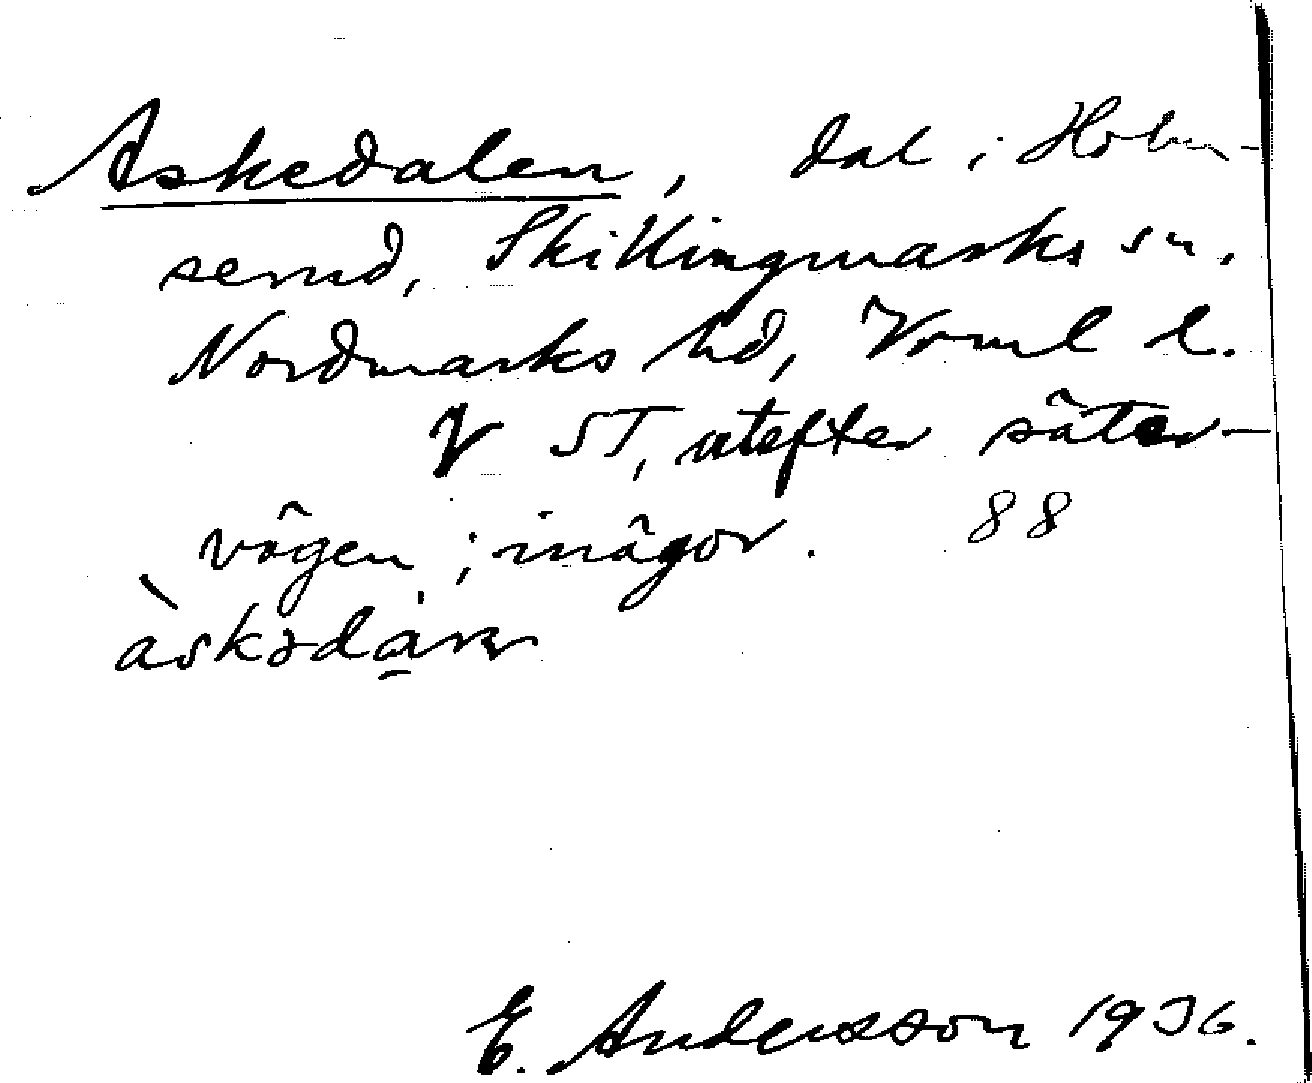 Askedalen, dal i Holm-
serud, Skillingmarks sn,
Nordmarks hd, Värml l.
V ST, utefter säter-
vägen; inägor. 88
àskədàɴ
E. Andersson 1936.